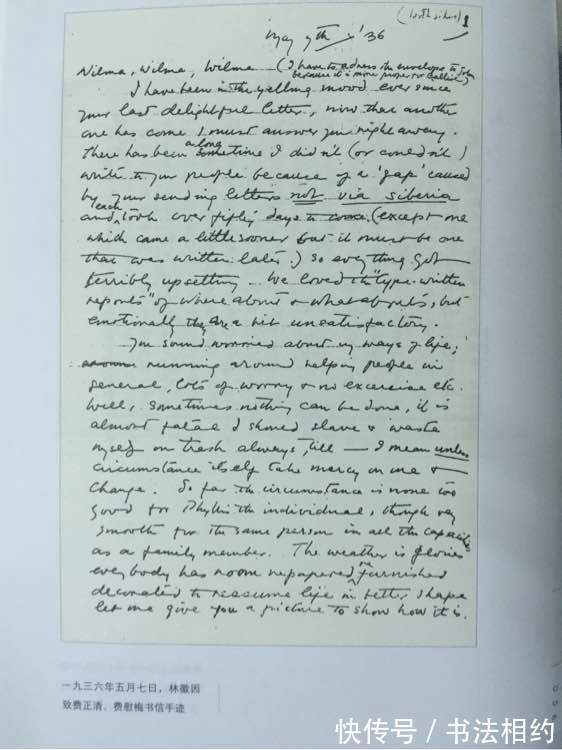 (both sides) 1
May 7th '36
Wilma, Wilma, Wilma (I have to adress the envelope to John
because it is more proper or
I have been in the yelling mood ever since
your last delightful letter, now that another
one has come I must answer you right away.
There has been along sometime I didn't (or couldn't)
write to you people because of a "gap" caused
by your sending letters not via Siberia
and each took over fifty days to come, (except one
which came a little sooner but it must be one
that was written later.) so everything got
terribly upsetting. We loved the "type-written
reports" of where abouts or what abouts, but
emotionally they are a bit unsatisfactory.
You sound worried about my ways of life,
running around helping people in
general, lots of worry & no excercise etc.
Well, sometimes nothing can be done, it is
almost fatal I should slave & waste
myself on trash always, till — I mean unless
circumstance itself take mercy on me &
change. So far the circumstance is none too
good for Phyllis the individual, though very
smooth for the same person in all the capacities
as a family member. The weather is glorious
everybody has room repapered, re-furnished
decorated to reassume life in better shape
let me give you a picture to show how it is.
一九三六年五月七日，林徽因
致费正清、费慰梅书信手迹
快传号／书法相约